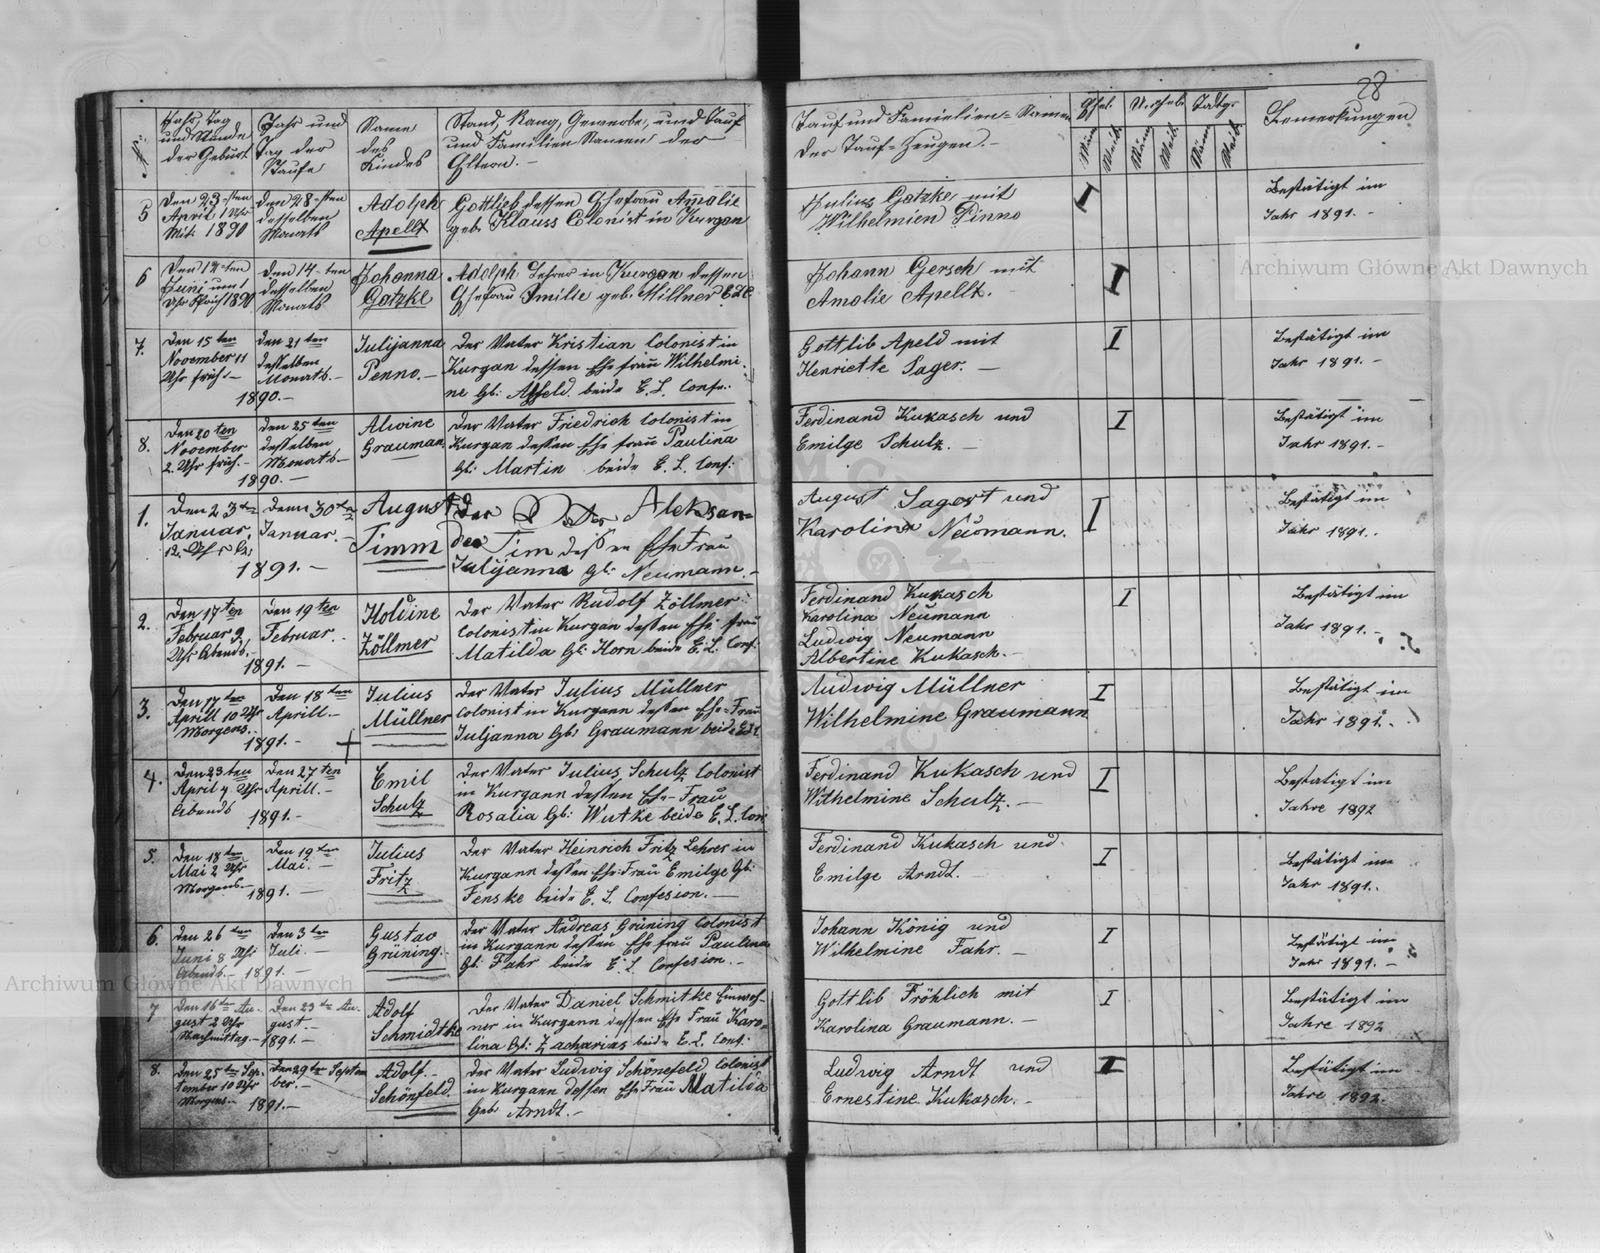 28
№
Jahr, Tag
und Stunde
der Geburt
Jahr und
Tag der
Taufe
Name
des
Kindes
Stand, Rang, Gewerbe, und Tauf
und Familien Namen der
Eltern. -
Tauf und Familien = Namen
der Tauf = Zeugen. -
Männ
Weib.
Männ
Weib.
Männ
Weib.
Bemerkungen
5
den 23-sten
April 1 Uhr
Mit. 1890
den 28-sten
desselben
Monats
Adolph
Apellt
Gottlieb dessen Ehefrau Amalie
geb. Klauss Colonist in Kurgan
Julius Gatzke mit
Wilhelmien Pinno
I
Bestätigt im
Jahr 1891. -
6
Den 12-ten
Juni um 1
Uhr Früh 1890
den 14-ten
desselben
Monats
Johanna
Gatzke
Adolph Lehrer in Kurgan dessen
Ehefrau Emilie geb. Millner
Johann Gersch mit
Amalie Apellt.
I
7.
Den 15 ten
November 11
Uhr früh -
den 21 ten
desselben
Monats. -
1890. -
Julijanna
Penno. -
Der Vater Kristian Colonist in
Kurgan dessen Ehe frau Wilhelmi-
ne Gb: Affeld beide E. L. Conf.:
Gottlib Apeld mit
Henriette Sager. -
I
Bestätigt im
Jahr 1891. -
8.
Den 20 ten
November
2. Uhr früh. -
den 25 ten
desselben
Monats -
1890. -
Alwine
Grauman
Der Vater Friedrich Colonist in
Kurgan dessen Ehe frau Paulina
Gb: Martin beide E. L. Conf:
Ferdinand Kukasch und
Emilge Schulz. -
I
Bestätigt im
Jahr 1891. -
1.
Den 23 ten
Januar.
1891. -
Denn 30 ten
Januar. -
August
Timm
Der Vater Aleksan=
der Tim dessen Ehe Frau
Julijanna Gb: Neumann. -
August Sagert und
Karolina Neumann.
I
Bestätigt im
Jahr 1891. .
2.
Den 17 ten
Februar 9
Uhr Abends. -
1891. -
Den 19 ten
Februar. .
Holdine
Zöllmer
Der Vater Rudolf Zöllmer
Colonist in Kurgan dessen Ehe frau
Matilda Gb: Horn beide E. L. Conf.
Ferdinand Kukasch
Karolina Neumann
Ludwig Neumann
Albertine Kukasch. -
I
Bestätigt im
Jahr 1891. -
3.
Den 17 ten
Aprill 10 Uhr
Morgens. .
1891. -
Den 18 ten
Aprill. -
Julius
Müllner
Der Vater Julius Müllner
Colonist in Kurgann dessen Ehe = Frau
Juljanna Gb: Graumann beide
Ludwig Müllner
Wilhelmine Graumann
I
Bestätigt im
Jahr 1891. .
4.
Den 23 ten
April 7 Uhr
Abends
1891. -
Den 27 ten
Aprill. -
Emil
Schulz
Der Vater Julius Schulz Colonist
in Kurgann dessen Ehe- Frau
Rosalia Gb: Wutke beide E. L. Con
Ferdinand Kukasch und
Wilhelmine Schulz. -
I
Bestatigt im
Jahre 1892
5.
Den 18 ten
Mai 2 Uhr
Morgens. -
1891. -
Den 19 ten
Mai. -
Julius
Fritz
Der Vater Heinrich Fritz Lehrer in
Kurgann dessen Ehe: Frau Emilge Gb:
Fenske beide E. L. Confesion. -
Ferdinand Kukasch und.
Emilge Arndt. -
I
Bestätigt im
Jahr 1891. .
6.
Den 26 ten
Juni 8 Uhr
Abends. - 1891. -
Den 3 ten
Juli. -
Gustav
Grüning.
Der Vater Andreas Grüning Colonist
in Kurgann dessen Ehe frau Paulina
Gb: Fahr beide E. L. Confesion. -
Johann König und
Wilhelmine Fahr. -
I
Bestätigt im
Jahr 1891. -
7
Den 16 ten Au-
gust 2 Uhr
Nachmittag. - 1891. -
Den 23 ten Au-
gust. -
Adolf
Schmidtke
Der Vater Daniel Schmitke Einwoh-
ner in Kurgann dessen Ehe Frau Karo-
lina Gb: Zacharias beide E. L. Conf:
Gottlib Fröhlich mit
Karolina Graumann. -
I
Bestätigt im
Jahre 1892
8.
Den 25 ten Sep-
tember 10 Uhr
Morgens. . 1891. -
Den 29 ten Septem
ber. -
Adolf. -
Schönfeld.
Der Vater Ludwig Schönefeld Colonist
in Kurgann dessen Ehe Frau Matilda
Geb Arndt. -
Ludwig Arndt und
Ernestine Kukasch. -
I
Bestätigt im
Jahre 1892.
Archiwum Główne Akt Dawnych
Archiwum Główne Akt Dawnych